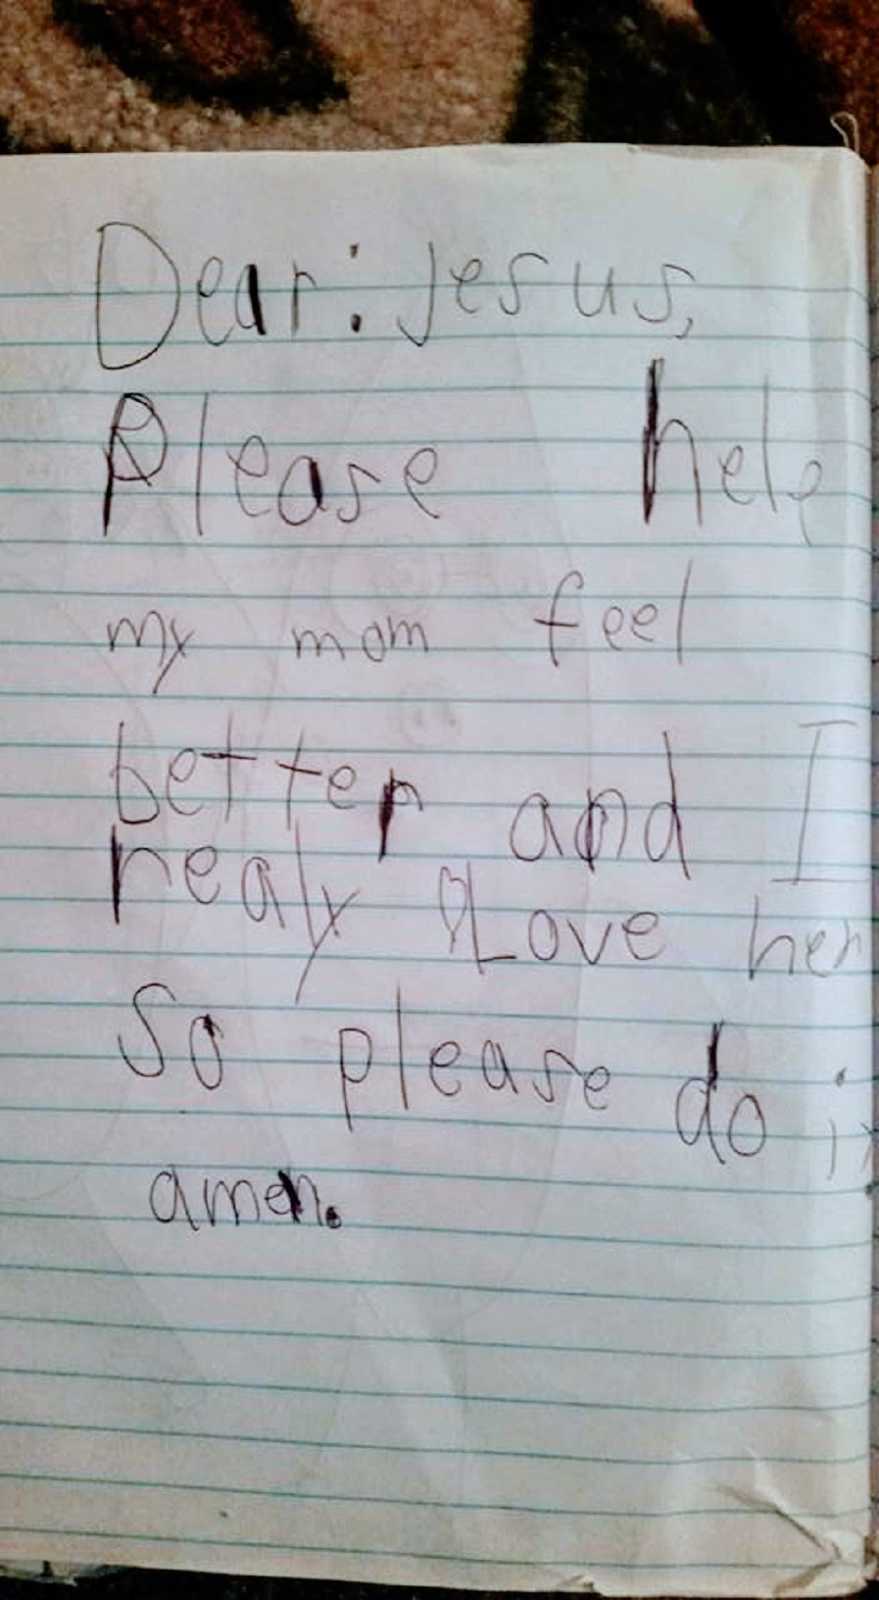 Dear: Jesus,
Please help
my mom feel
better and I
realy Love her
So please do it
amen.